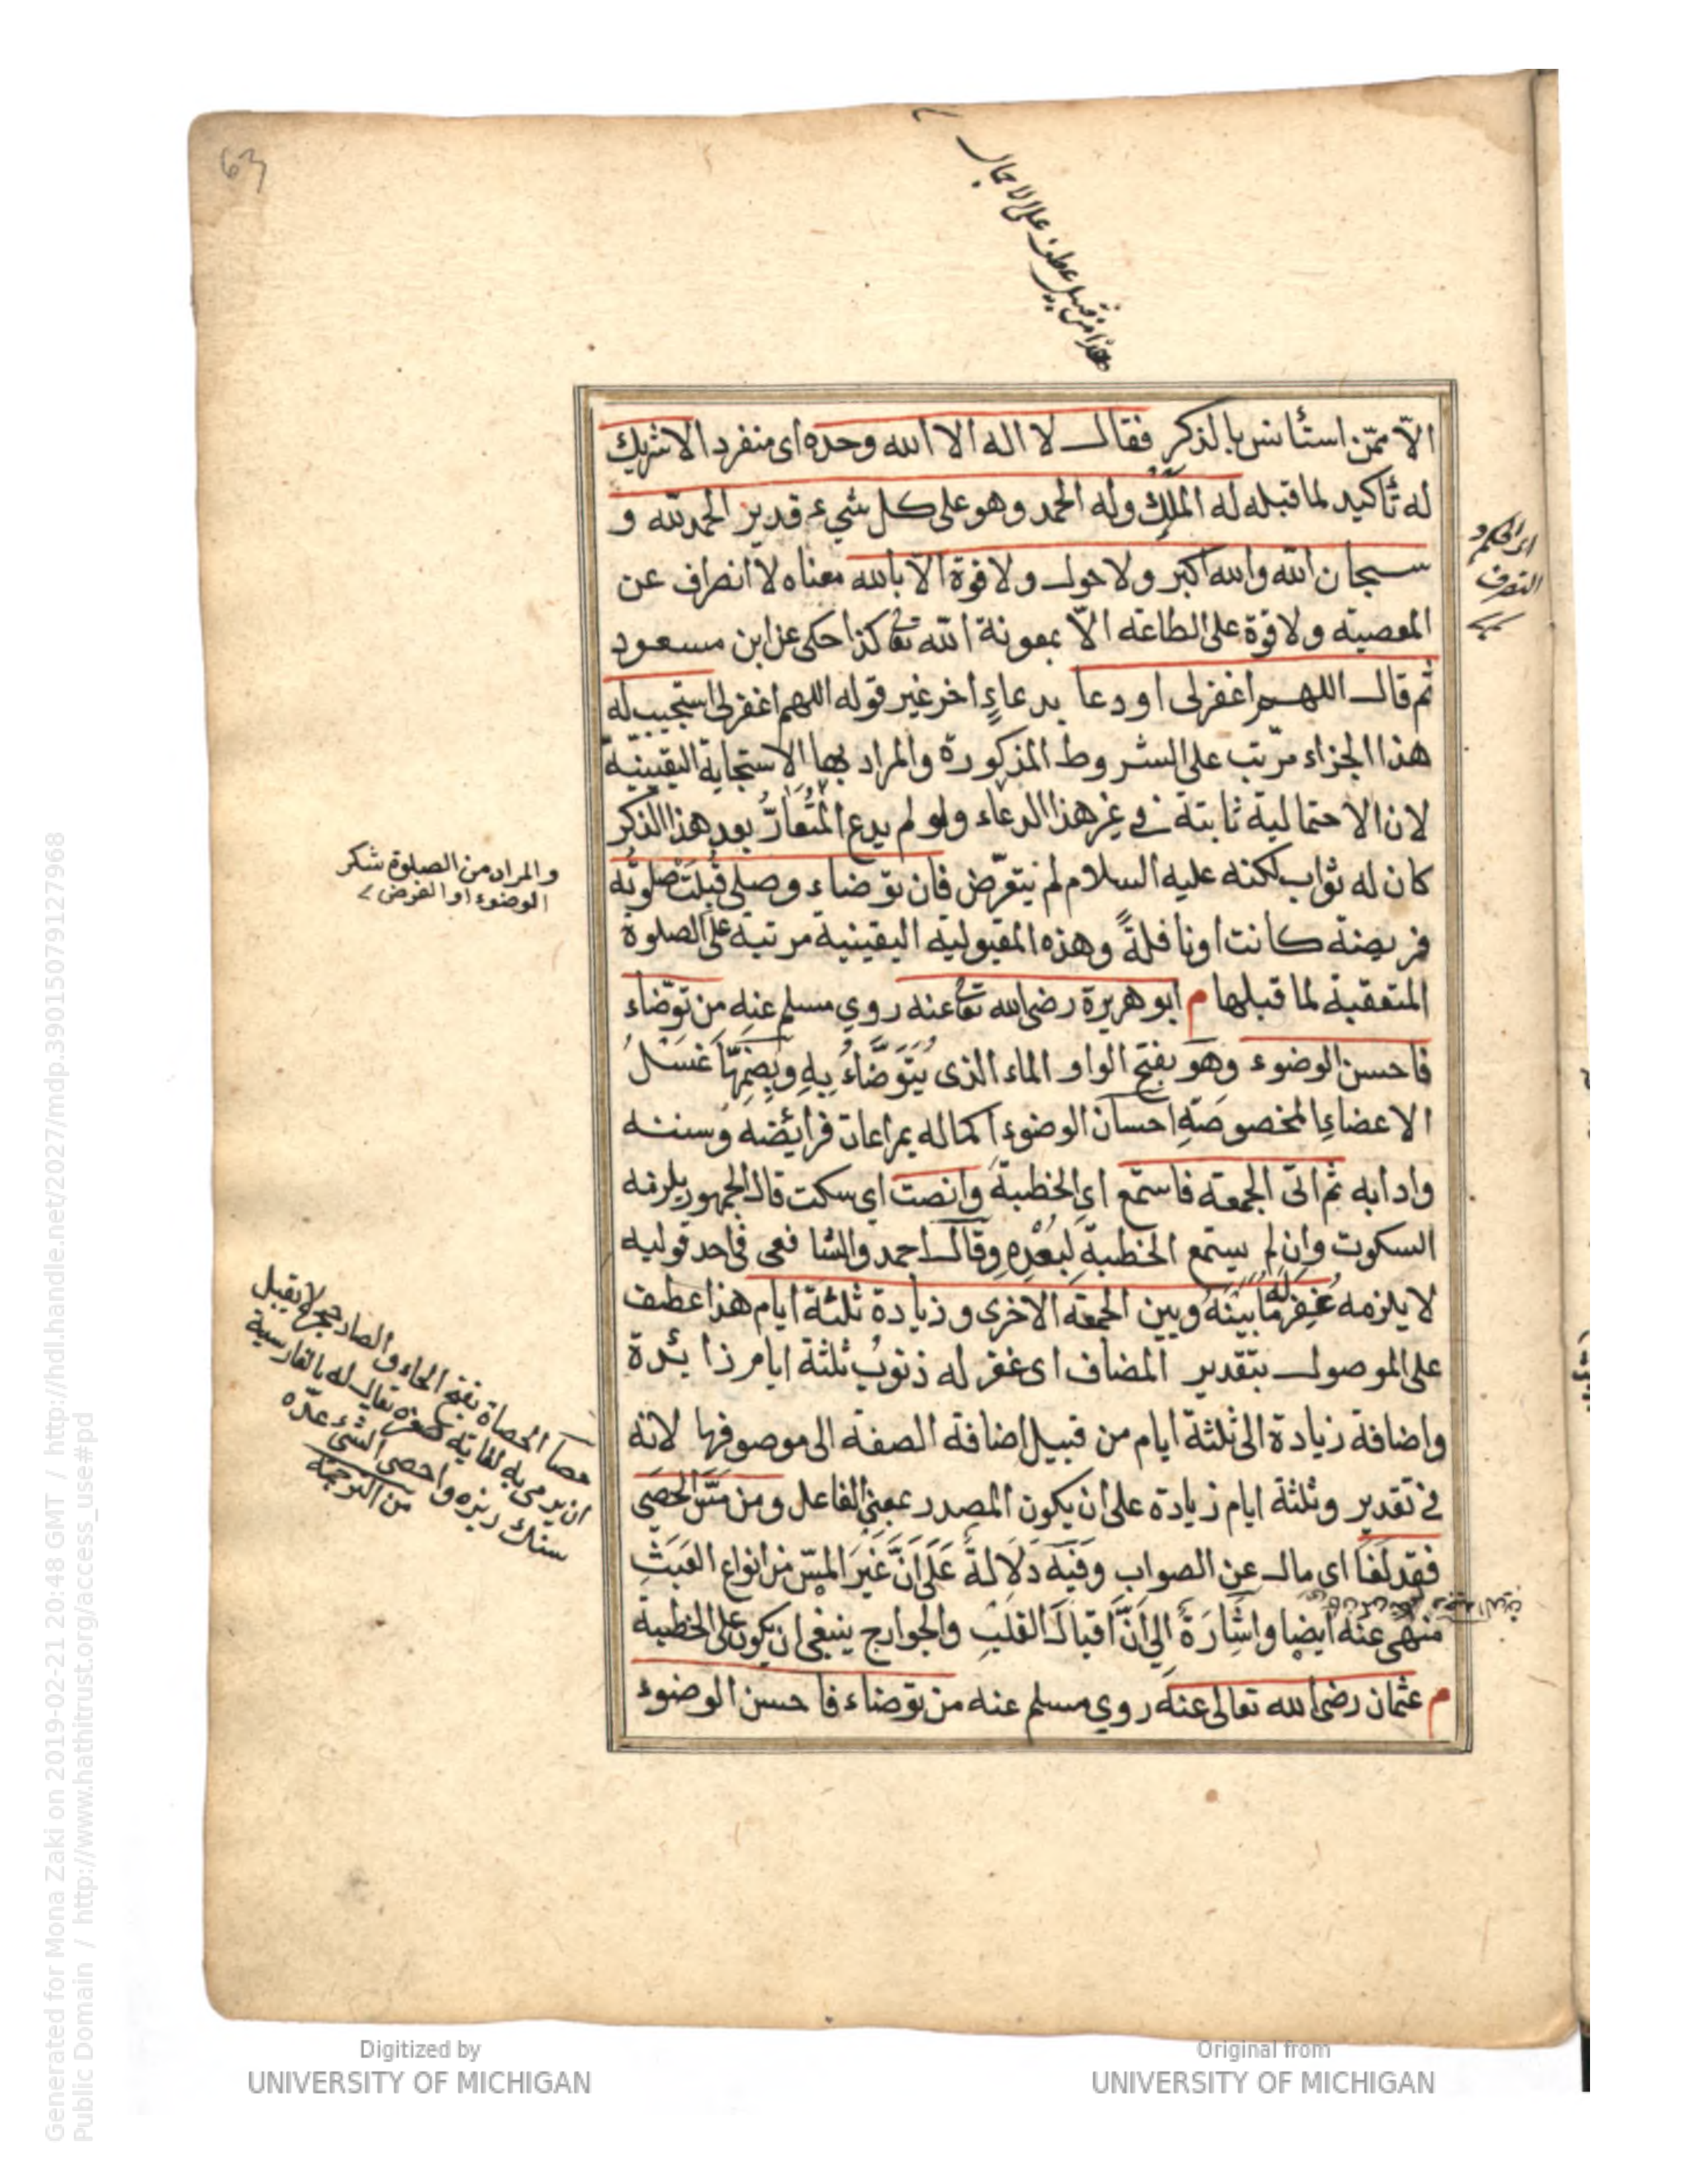 63
هذا من قبيل عطف على الاجمال
الاّ ممّن استأنس بالذكر فقال لا اله الا الله وحده اى منفرد الا شريك
له تأكيد لما قبله له الملك وله الحمد وهو على كل شيء قدير الحمد لله و
سبحان الله والله اكبر ولا حول ولا قوة الاّ بالله معناه لا انصراف عن
المعصية ولا قوة على الطاعة الاّ بمعونة الله تعا كذا حكى عن ابن مسعود
ثم قال اللهم اغفر لى او دعا بدعاءٍ اخر غير قوله اللهم اغفر لى استجيب له
هذا الجزاء مرّتب على الشروط المذكورة والمراد بها الاستجابة اليقينيّة
لان الاحتمالية ثابتة في غير هذا الدعاء ولو لم يدع المُتعارّ بعد هذا الذكر
كان له ثواب لكنه عليه السلام لم يتعرّض فان توضاء وصلى قُبلت صلوته
فريضة كانت او نافلةً وهذه المقبولية اليقينية مرتبة على الصلوة
المتعقبة لما قبلها م ابو هريرة رضى الله تعا عنه روي مسلم عنه من توضاء
فاحسن الوضوء وهو بفتح الواو الماء الذى يُتَوَضَّاءُ بِهِ وبِضمِّهَا غَسْلُ
الاعضاءِ المخصوصَةِ احسان الوضوء اكماله بمراعات فرايضه وسننه
وادابه ثم اتى الجمعة فاستمع اى الخطبة وانصت اى سكت قال الجمهور يلزمه
السكوت وان لم يستمع الخطبة لبُعْدِهِ وقال احمد والشافعى في احد قوليه
لا يلزمه غُفِرَ له مَا بينَهُ وبين الجمعة الاخرى وزيادة ثلثة ايام هذا عطف
على الموصول بتقدير المضاف اى غفر له ذنوبُ ثلثة ايام زائدة
واضافة زيادة الى ثلثة ايام من قبيل اضافة الصفة الى موصوفها لانه
في تقدير وثلثة ايام زيادة على ان يكون المصدر بمعنى الفاعل ومن مَسَّ الحَصَى
فقد لَغَا اى مال عن الصواب وفيه دَلَالةٌ عَلَى اَنَّ غَيرَ المسّ من انواع العَبَثِ
منهى عنه ايضا واشَارَةٌ الى اَنَّ اقبال القلب والجوارح ينبغى ان يكون على الخطبة
م عثمان رضى الله تعالى عنه روي مسلم عنه من توضاء فاحسن الوضوء
اى الحكم و
التصرف
والمراد من الصلوة شكر
الوضوء او الفرض
حصا الحصاة بفتح الحاء والصاد حجر لا يقبل
ان يرمى به لغاية صغره يقال له بالفارسية
سنك ريزه واحصى الشئ عدّه
من الترجمة
Generated for Mona Zaki on 2019-02-21 20:48 GMT / http://hdl.handle.net/2027/mdp.39015079127968
Public Domain / http://www.hathitrust.org/access_use#pd
Digitized by
UNIVERSITY OF MICHIGAN
Original from
UNIVERSITY OF MICHIGAN